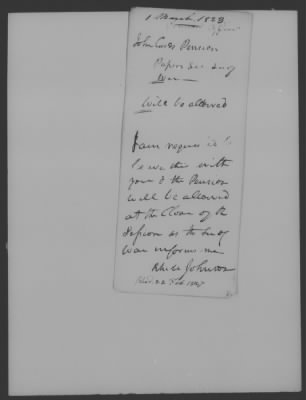 1 March 1823
John Cards Pension
Papers Sec. of
War
Will be allowed
I am requested to
leave this with
you & the Pension
will be allowed
at the Close of the
Session as the Sec of
War informs me
Johnson
22 Feb.